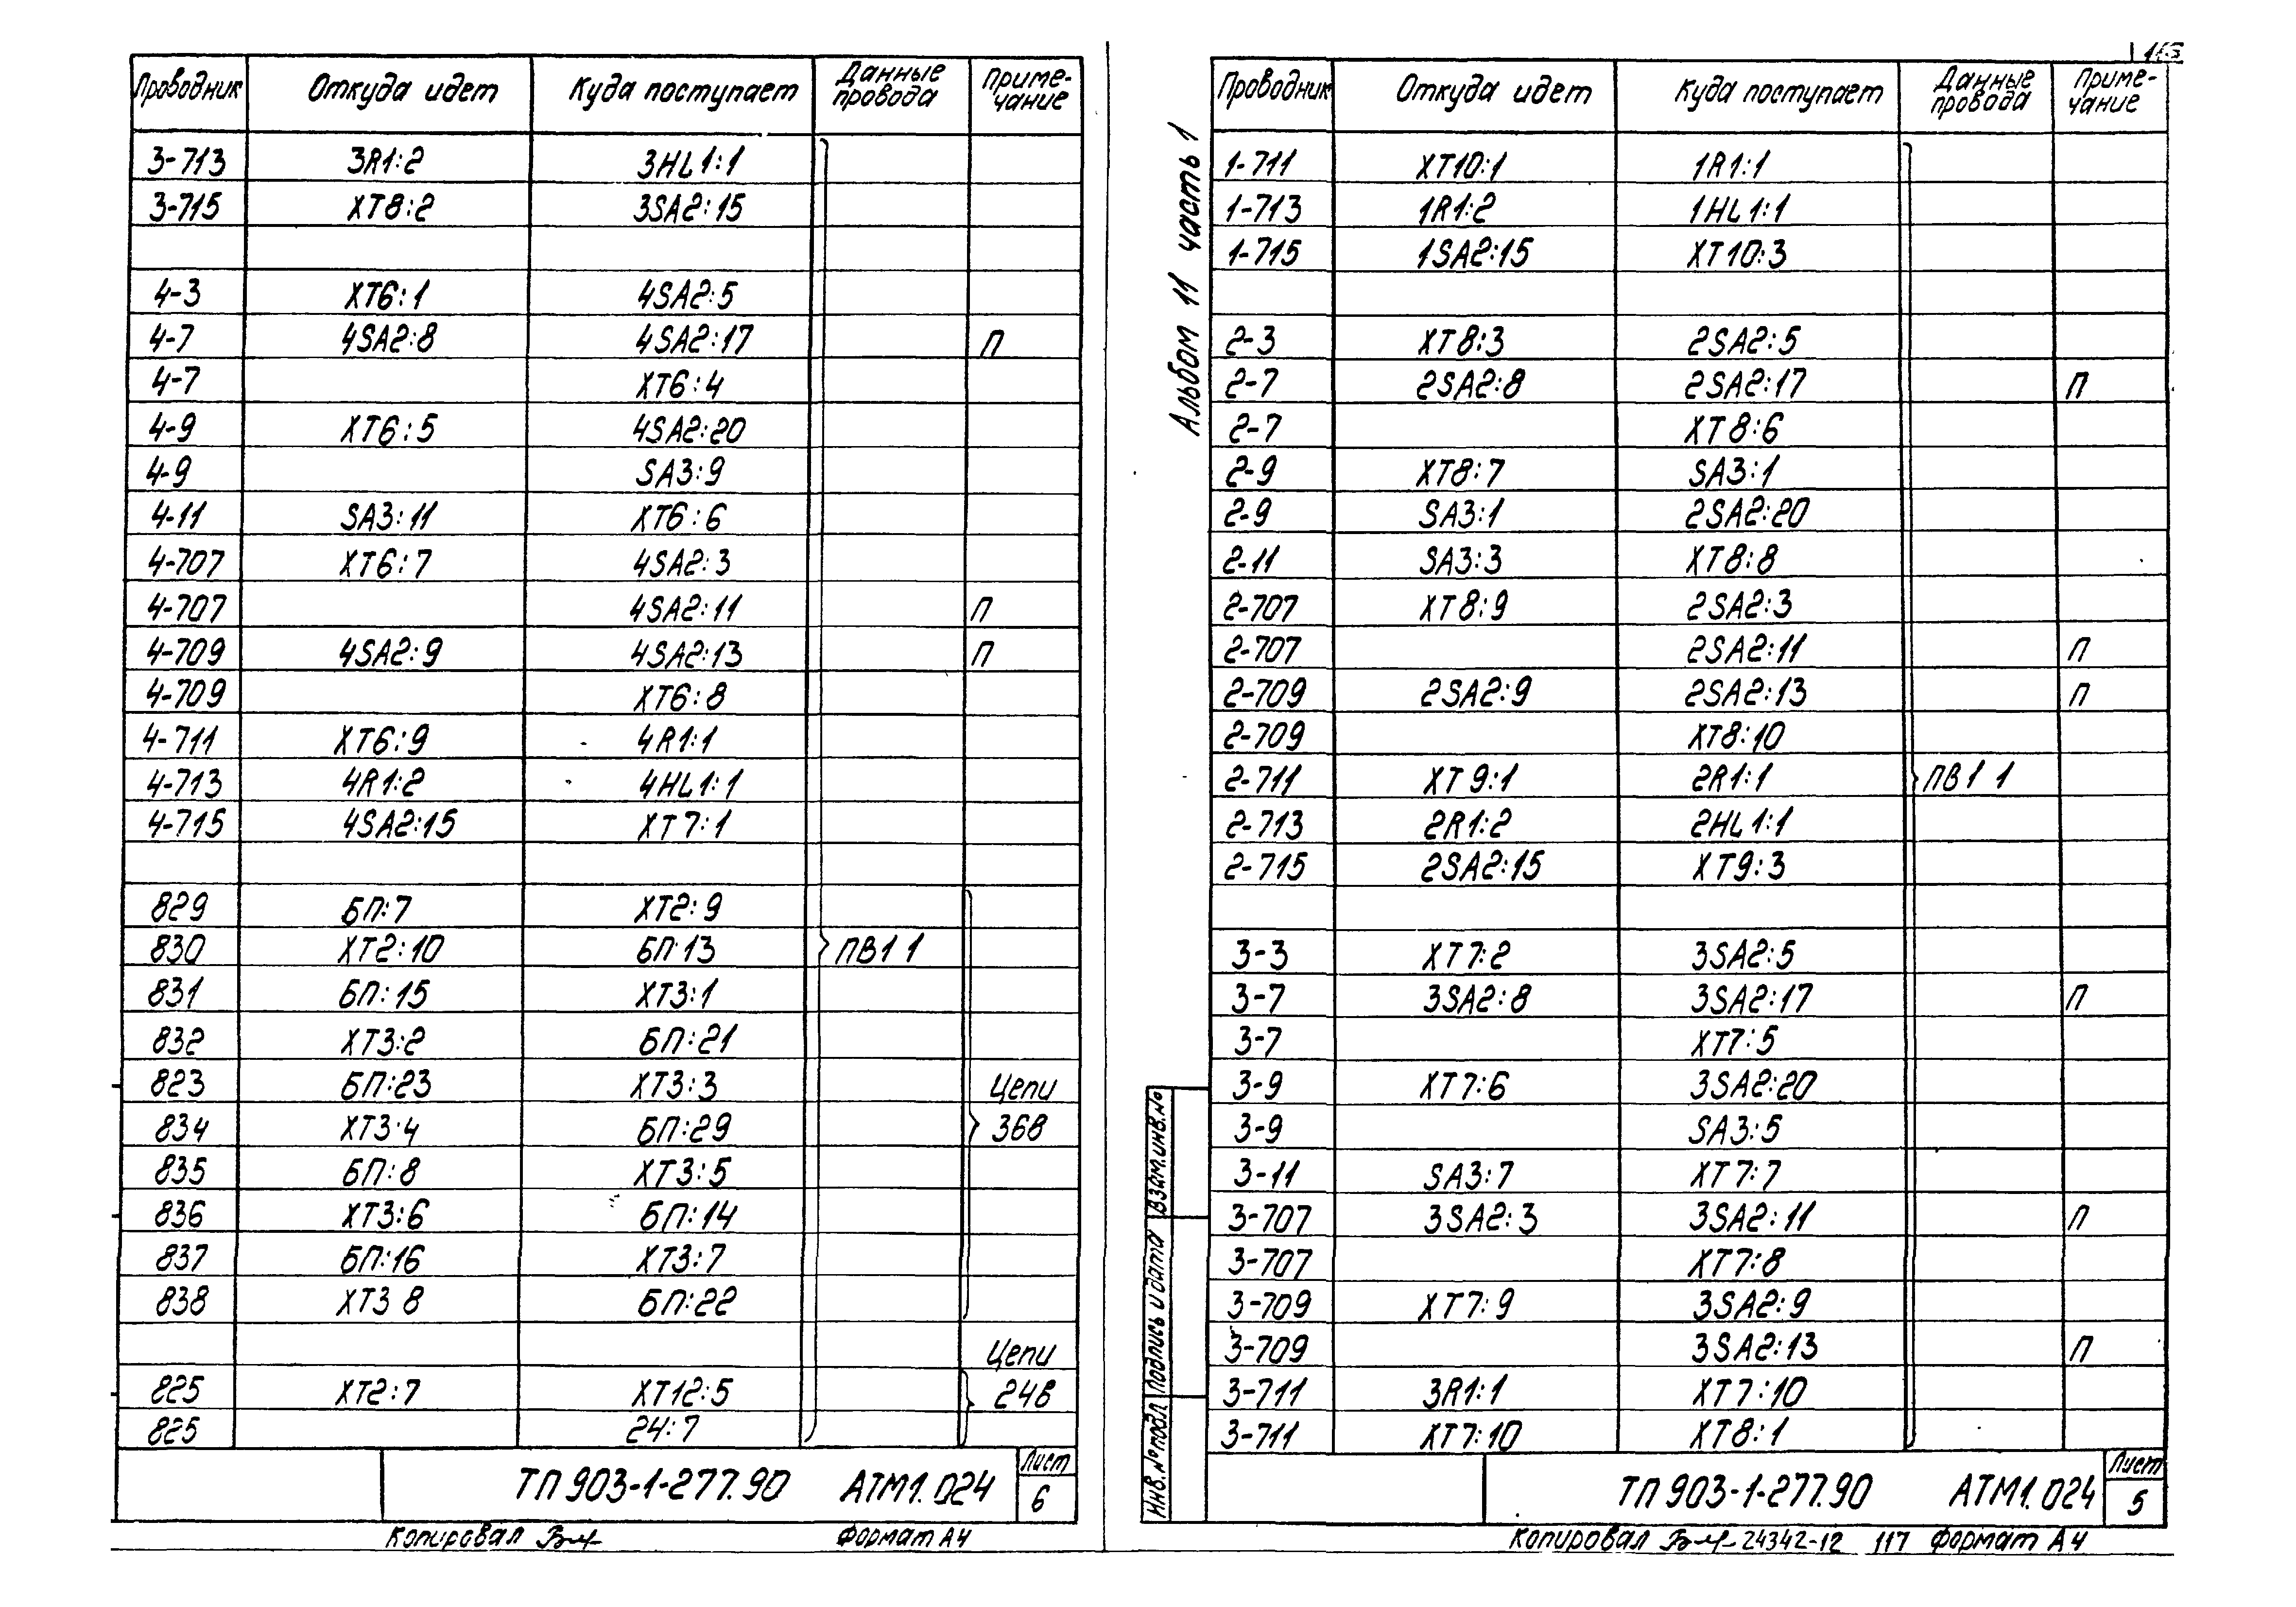 Проводник Откуда идет Куда поступает Данные провода Приме-чание
3-713 3R1:2 3HL1:1
3-715 XT8:2 3SA2:15
4-3 XT6:1 4SA2:5
4-7 4SA2:8 4SA2:17 П
4-7 XT6:4
4-9 XT6:5 4SA2:20
4-9 SA3:9
4-11 SA3:11 XT6:6
4-707 XT6:7 4SA2:3
4-707 4SA2:11 П
4-709 4SA2:9 4SA2:13 П
4-709 XT6:8
4-711 XT6:9 4R1:1
4-713 4R1:2 4HL1:1
4-715 4SA2:15 XT7:1
829 БП:7 XT2:9
830 XT2:10 БП:13 ПВ1 1
831 БП:15 XT3:1
832 XT3:2 БП:21
823 БП:23 XT3:3 Цепи
834 XT3:4 БП:29 36В
835 БП:8 XT3:5
836 XT3:6 БП:14
837 БП:16 XT3:7
838 XT3 8 БП:22
Цепи
825 XT2:7 XT12:5 24В
825 24:7
ТП 903-1-277.90 АТМ1.024 Лист 6
Копировал Формат А4
Альбом 11 часть 1
Проводник Откуда идет Куда поступает Данные провода Приме-чание
1-711 XT10:1 1R1:1
1-713 1R1:2 1HL1:1
1-715 1SA2:15 XT10:3
2-3 XT8:3 2SA2:5
2-7 2SA2:8 2SA2:17 П
2-7 XT8:6
2-9 XT8:7 SA3:1
2-9 SA3:1 2SA2:20
2-11 SA3:3 XT8:8
2-707 XT8:9 2SA2:3
2-707 2SA2:11 П
2-709 2SA2:9 2SA2:13 П
2-709 XT8:10
2-711 XT9:1 2R1:1 ПВ1 1
2-713 2R1:2 2HL1:1
2-715 2SA2:15 XT9:3
3-3 XT7:2 3SA2:5
3-7 3SA2:8 3SA2:17 П
3-7 XT7:5
3-9 XT7:6 3SA2:20
3-9 SA3:5
3-11 SA3:7 XT7:7
3-707 3SA2:3 3SA2:11 П
3-707 XT7:8
3-709 XT7:9 3SA2:9
3-709 3SA2:13 П
3-711 3R1:1 XT7:10
3-711 XT7:10 XT8:1
Взам.инв.№
Подпись и дата
Инв.№подл
ТП 903-1-277.90 АТМ1.024 Лист 5
Копировал 24342-12 117 Формат А4